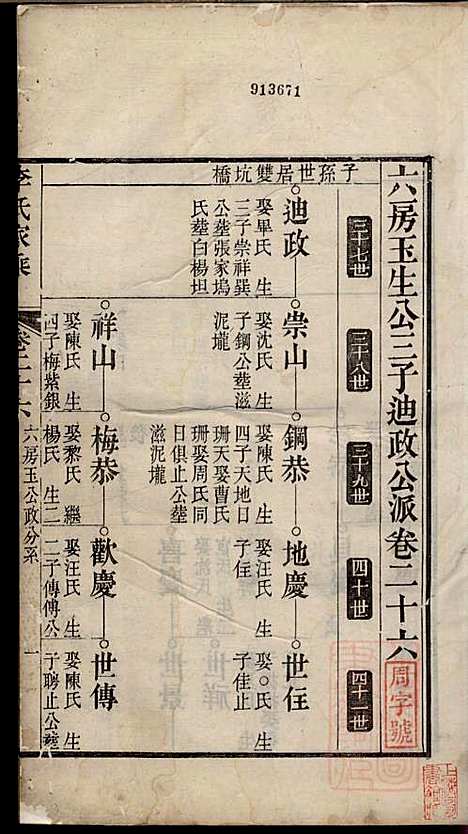 913671
六房玉生公三子迪政公派卷二十六
周字號
三十七世
三十八世
三十九世
四十世
四十一世
子孫世居雙坑橋
迪政
娶畢氏 生
三子崇祥巽
公塟張家塢
氏塟白楊坦
崇山
娶沈氏 生
子鋼公塟滋
泥壠
鋼恭
娶陳氏 生
四子天地口
珊天娶曹氏
珊娶周氏同
日俱止公塟
滋泥壠
地慶
娶汪氏 生
子住
世住
娶○氏 生
子佳止
祥山
娶陳氏 生
四子梅紫銀
梅恭
娶黎氏 繼
楊氏 生二
歡慶
娶汪氏 生
二子傳傅公
世傳
娶陳氏 生
子聘止公塟
李氏家乘
卷二十六
六房玉公政分系
一